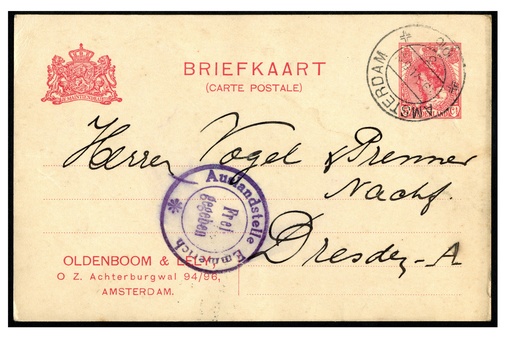 BRIEFKAART
(CARTE POSTALE)
AMSTERDAM
Herren Vogel & Prenner
Nachf.
Dresden-A
Auslandstelle Emmerich
Frei-
gegeben
OLDENBOOM &
O Z. Achterburgwal 94/96,
AMSTERDAM.